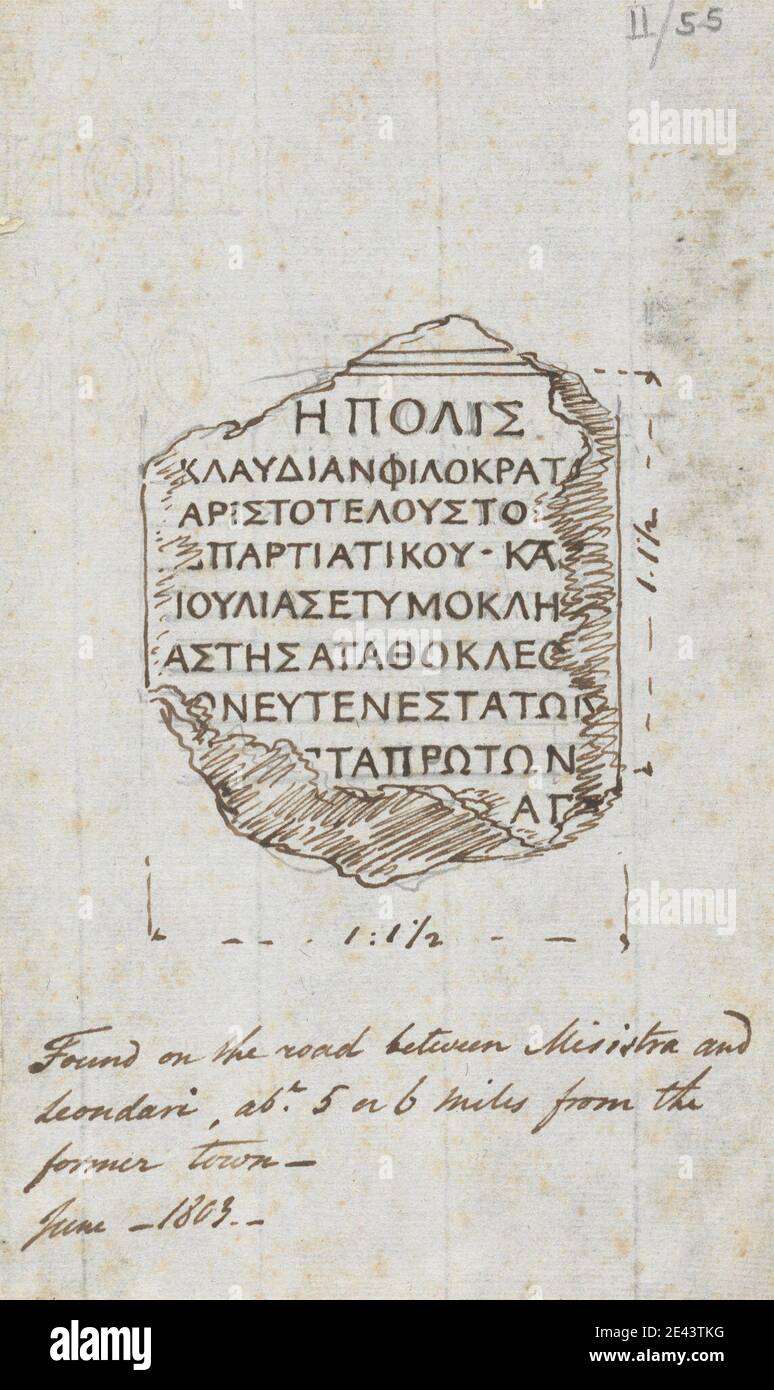 II/55
Η ΠΟΛΙΣ
ΚΛΑΥΔΙΑΝΦΙΛΟΚΡΑΤ
ΑΡΙΣΤΟΤΕΛΟΥΣΤΟ
ΠΑΡΤΙΑΤΙΚΟΥ - ΚΑ
ΙΟΥΛΙΑΣΕΤΥΜΟΚΛΗ
ΑΣΤΗΣΑΓΑΘΟΚΛΕΟ
ΟΝΕΥΓΕΝΕΣΤΑΤΩΝ
ΤΑΠΡΩΤΩΝ
ΑΓ
1.1½
1:1½
Found on the road between Misistra and
Leondari, abt. 5 or 6 miles from the
former town—
June - 1803.-
alamy
Image ID: 2E43TKG
www.alamy.com